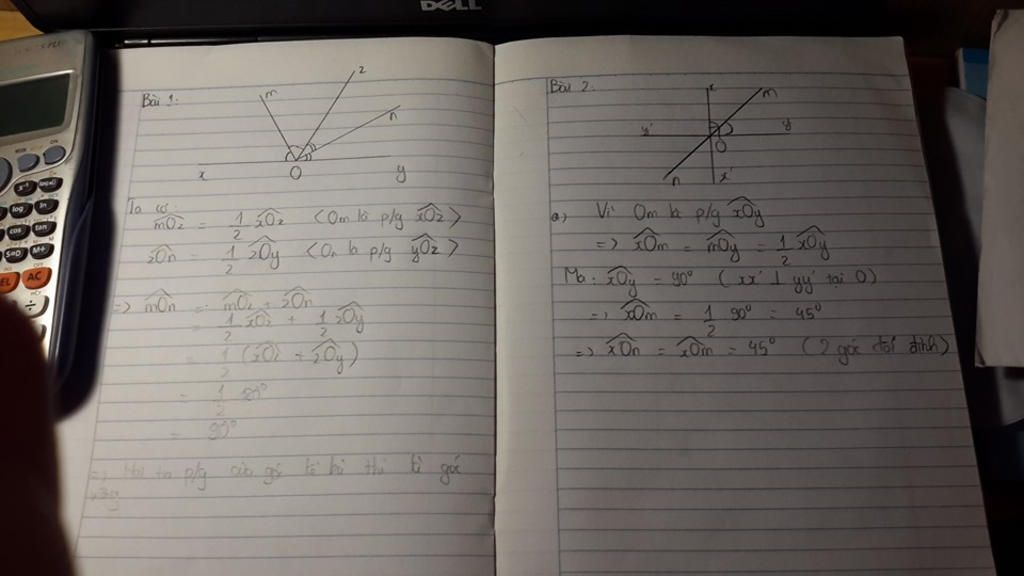 DELL
Bài 1:
m
z
n
x
O
y
Ta có:
mOz = 1/2 xOz <Om là p/g xOz>
zOn = 1/2 zOy <On là p/g yOz>
=> mOn = mOz + zOn
= 1/2 xOz + 1/2 zOy
= 1/2 (xOz + zOy)
= 1/2 180°
= 90°
=> p/g của góc kề bù thì là góc
vuông
Bài 2:
x
m
y'
y
O
n
x'
a, Vì Om là p/g xOy
=> xOm = mOy = 1/2 xOy
Mà: xOy = 90° (xx' ⊥ yy' tại O)
=> xOm = 1/2 90° = 45°
=> xOn = xOm = 45° (2 góc đối đỉnh)
log
ln
cos
tan
S⇔D
M+
AC
ON